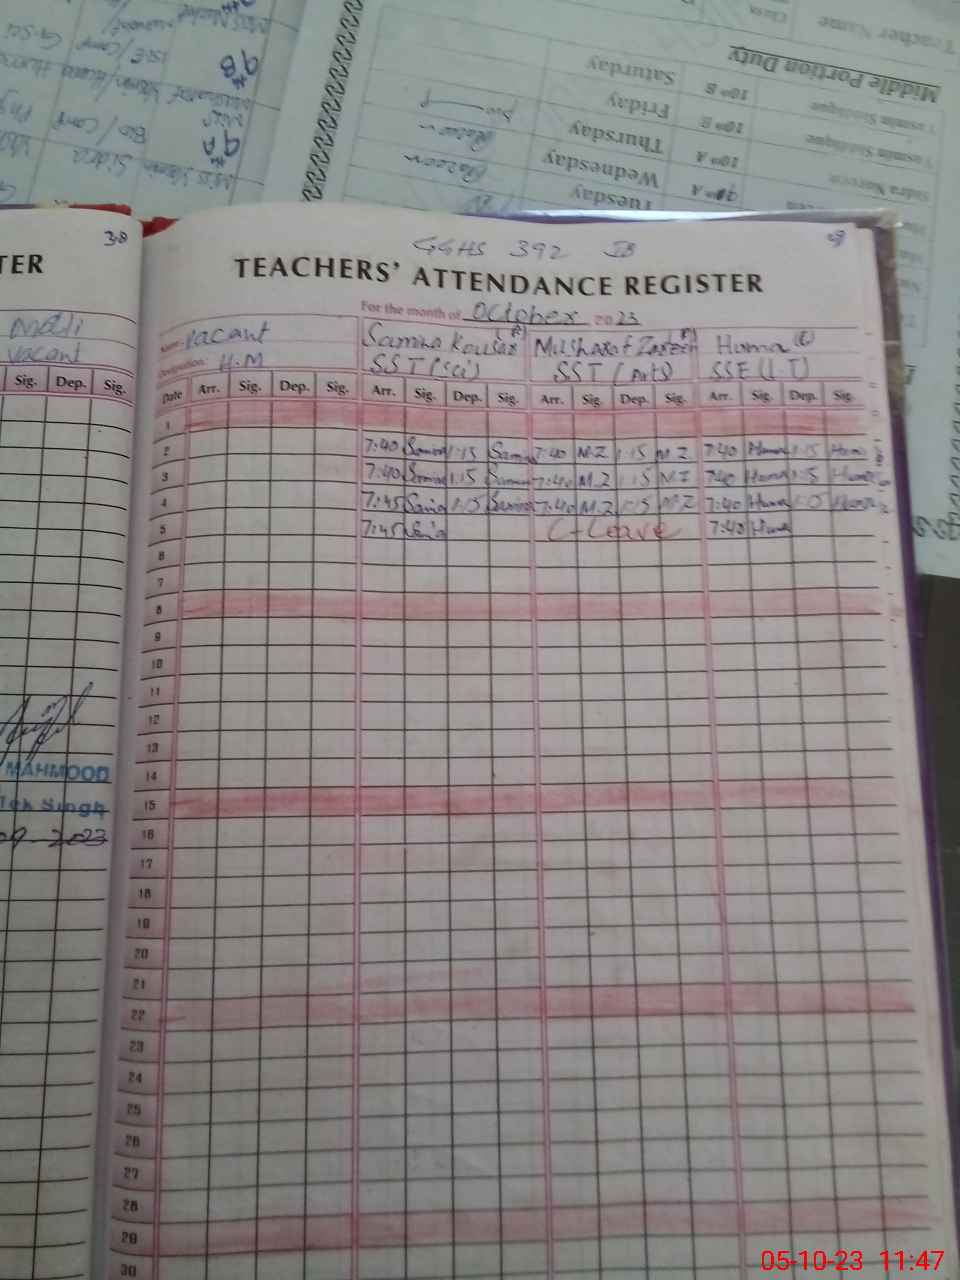 Teacher Name
Class
Middle Portion Duty
Yasmin Siddique
10th B
Saturday
Yasmin Siddique
10th B
Friday
Sidra Noreen
10th A
Thursday
10th A
Wednesday
Tuesday
9B
9A
38
TER
Mali
vacant
Sig. Dep. Sig.
MAHMOOD
Tek Singh
09-2023
GGHS 392 JB
TEACHERS' ATTENDANCE REGISTER
For the month of October 2023
Name: vacant Samina Kousar (P) Musharaf Zareen (P) Huma (C)
Designation: H.M SST (Sci) SST (Arts) SSE (I.T)
Date Arr. Sig. Dep. Sig. Arr. Sig. Dep. Sig. Arr. Sig. Dep. Sig. Arr. Sig. Dep. Sig.
1
2 7:40 Samina 1:15 Samina 7:40 M.Z 1:15 M.Z 7:40 Huma 1:15 Huma
3 7:40 Samina 1:15 Samina 7:40 M.Z 1:15 M.Z 7:40 Huma 1:15 Huma
4 7:45 Samina 1:15 Samina 7:40 M.Z 1:15 M.Z 7:40 Huma 1:15 Huma
5 7:45 Samina C-Leave 7:40 Huma
6
7
8
9
10
11
12
13
14
15
16
17
18
19
20
21
22
23
24
25
26
27
28
29
30
05-10-23 11:47